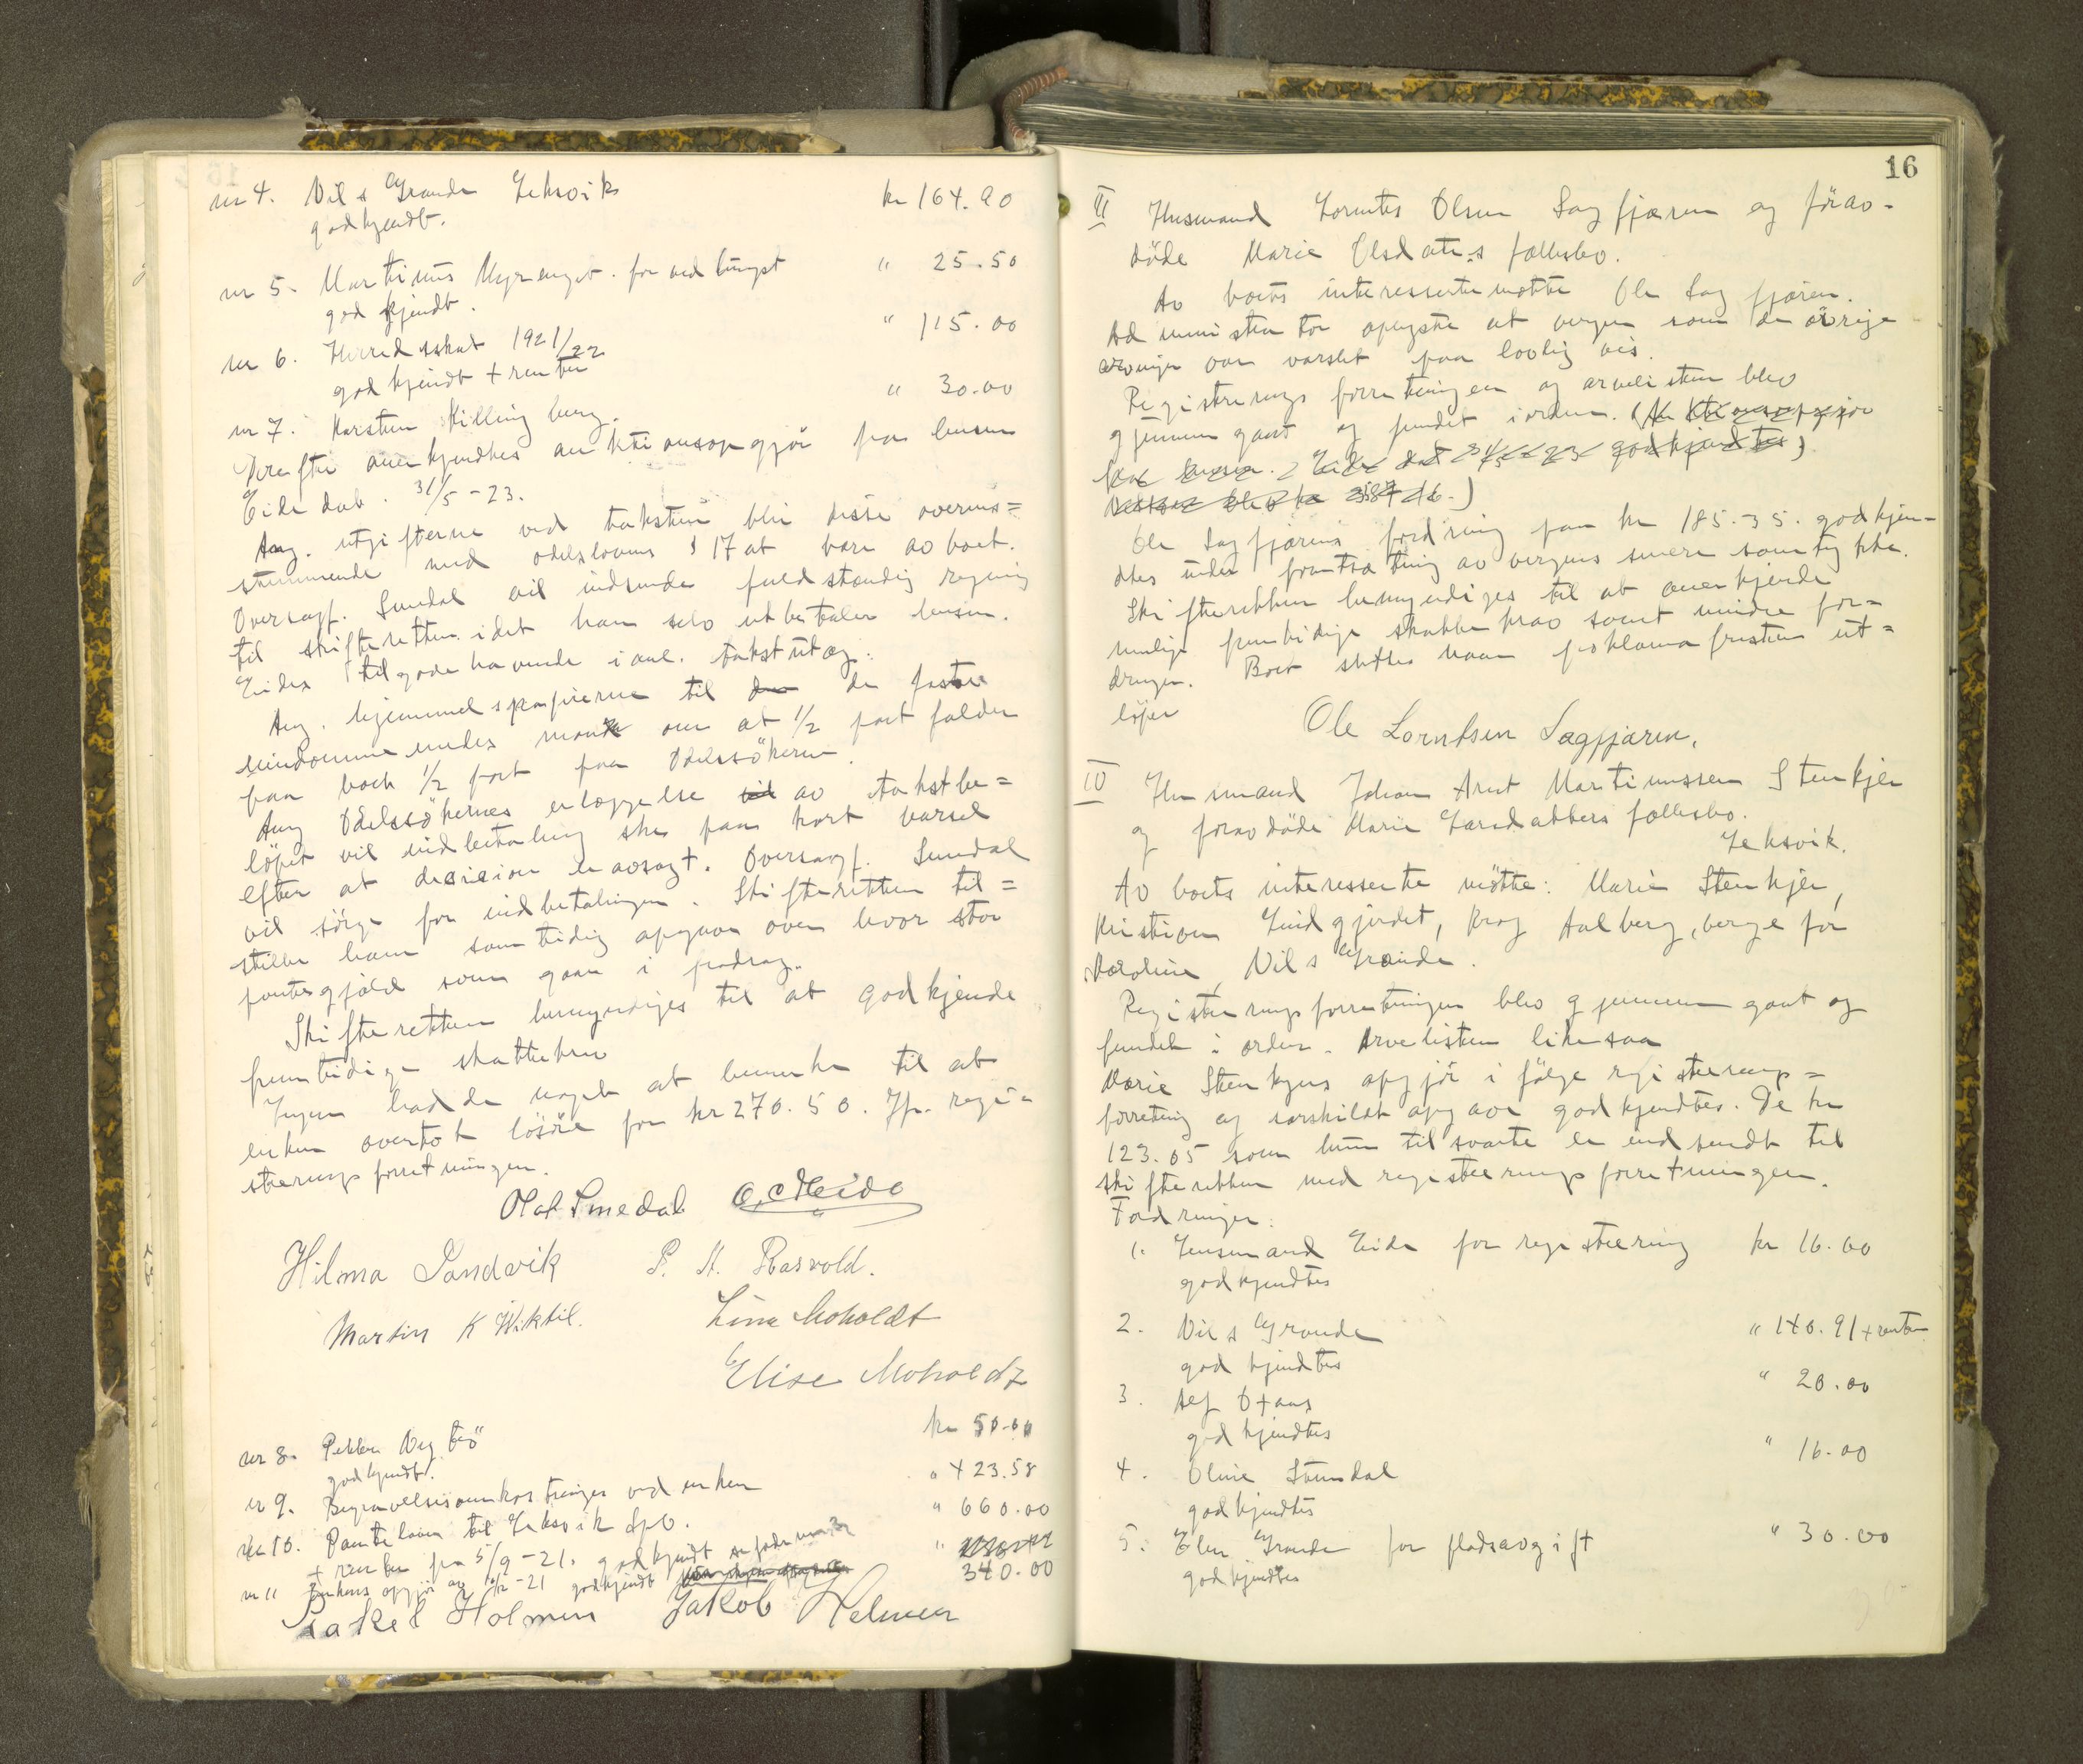 nr 4. Nils Grande Leksvik kr 164.90
godkjendt.
nr 5. Martinus Myrenget. for vedhugst " 25.50
godkjendt.
nr 6. Herredsskat 1921/22 " 115.00
godkjendt + renter
nr 7. Karsten Killingberg. " 30.00
Derefter anerkjendtes auktionsopgjör fra lensm
Eide dat. 31/5-23.
Ang. utgifterne ved taksten blir disse overens=
stemmende med odelslovens § 17 at bære av boet.
Oversagf. Smedal vil indsende fuldstændig regning
til skifteretten idet han selv utbetaler lensm.
Eides tilgodehavende i anl. takstutlæg.
Ang. hjemmelspapirerne til de faste
eiendomme endes at 1/2 part falder
paa boet 1/2 part paa Odelssökeren.
Ang Odelssökernes erlæggelse av takstbe=
löpet vil indbetaling ske paa kort varsel
efter at decision er avsagt. Oversagf. Smedal
vil sörge for indbetalingen. Skifteretten til=
stiller ham samtidig opgave over hvor stor
pantegjæld som gaar i fradrag.
Skifteretten bemyndiges til at godkjende
fremtidige skattekrav
Ingen hadde noget at bemerke til at
enken overtok lösöre for kr 270.50. Jfr. regi=
streringsforretningen.
Olaf Smedal O. C. Heide
Hilma Sandvik P. A. Rasvold.
Martin K Wiktil. Lina Moholdt
Elise Moholdt
nr 8. Petter Nyg kr 50.00
godkjendt.
nr 9. Begravelsesomkostninger ved enken " 423.58
nr 10. Pantelaan til Leksvik Spb. " 660.00
+ renter fra 5/9-21. godkjendt
nr 11 Enkens opgjör av -21 godkjendt 340.00
Rakel Holmen Jakob Helmen
16
III Husmand Lorntes Olsen Sagfjæren og förav-
döde Marie Olsdatters fællesbo.
Av boets interessenter mötte Ole Sagfjæren.
Administrator oplyste at vergen som de övrige
arvinger var varslet paa lovlig vis.
Registreringsforretningen og arvelisten blev
gjennemgaat og fundet i orden. (Auktionsopgjör
fra lensm. Eide dat 31/5-23 godkjendtes)
Ole Sagfjærens fordring paa kr 185.35. godkjen-
dtes under forutsætning av vergens senere samtykke.
Skifteretten bemyndiges til at anerkjende
mulige fremtidige skattekrav samt mindre for=
dringer. Boet sluttes naar proklamafristen ut=
löper
Ole Lorntsen Sagfjæren.
IV Husmand Johan Arnt Martinussen Stenkjer
og foravdöde Marie Larsdatters fællesbo.
Leksvik.
Av boets interessenter mötte: Marie Stenkjer,
Kristian Lindgjerdet, Krog Aalberg, verge for
Karoline, Nils Grande.
Registreringsforretningen blev gjennemgaat og
fundet i orden. Arvelisten likesaa
Marie Stenkjers opgjör i fölge registrerings=
forretning og særskildt opgave godkjendtes. De kr
123.05 som hun tilsvarte er indsendt til
skifteretten med registreringsforretningen.
Fordringer:
1. Lensmand Eide for registrering kr 16.00
godkjendtes
2. Nils Grande " 140.91 + renter
godkjendtes
3. Alf Oxaas " 20.00
godkjendtes
4. Oline Stundal " 16.00
godkjendtes
5. Elen Grande for pladsavgift " 30.00
godkjendtes